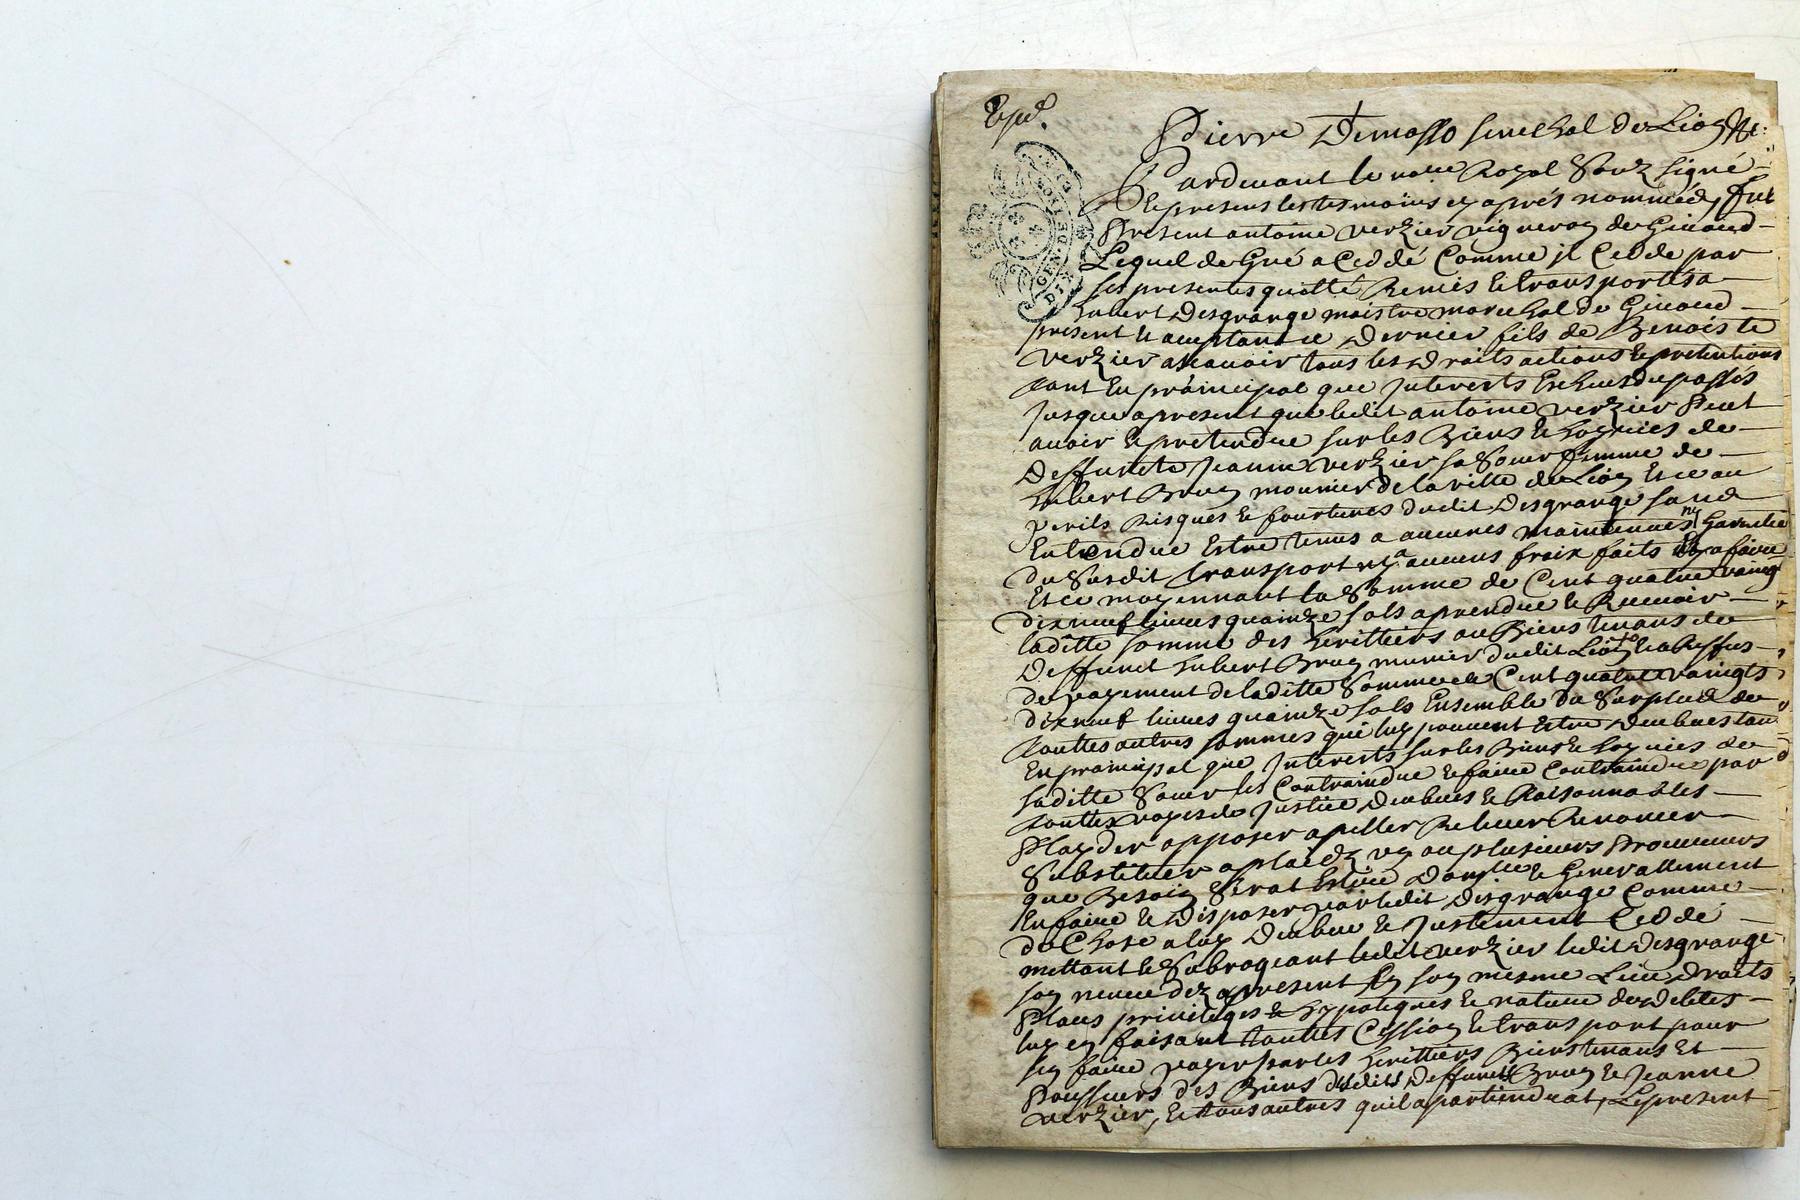 Exped.
Pierre Demasso senechal de Lion &c:
Pardevant le no.re Royal Souz signé
& presens les tesmoins cy aprés nommés, fut
Present antoine verzier vigneron de Givord
Lequel de Gré a Ceddé Comme jl Cedde par
ses presentes quitté Remis & transporté a
hubert Desgrange maistre mareschal de Givord
present & acceptant ce dernier fils de Benoiste
verzier assavoir tous les Droits actions & pretentions
tant En praincipal que Jnterests Escheus du passés
Jusque a present que ledit antoine verzier Peut
avoir & pretendre sur les Biens & hoyries de
Deffuncte Jeanne verzier sa Soeur femme de
hubert Brun mounier de la ville de Lion Et ce au
perils Risques & fourtunes dudit Desgrange sans
Entendre Estre tenus a aucunes maintenues ny Garentie
du Susdit transport ny a aucuns fraix faits ny a faire
Et ce moyennant la Somme de Cent quatre vaingt
dix neuf livres quainze sols a prendre & Recevoir
laditte somme des herittiers ou Biens tenans de
Deffunct hubert Brun munier dudit Lion & a Reffus
de payement de laditte Somme de Cent quatre vaingts
dix neuf livres quainze sols Ensemble du Surplus de
touttes autres sommes que luy peuvent Estre deubues tan
En praincipal que Jnterests sur les Biens & hoyries de
saditte Soeur les Contraindre & faire Contraindre par
touttes voyes de Justice deubues & Raisonnables
Playder opposer apeller Relever Renoncer
Substituer a plaids un ou plusieurs Procureurs
que Besoin Serat Eslire Domicille & Generallement
En faire & Disposer par ledit Desgrange Comme
de Chose a luy Deubue & Justement Ceddé
mettant & Subrogeant ledit verzier ledit Desgrange
son neveu dez a present En son mesme Lieu Droits
Places privileges & hypoteques & nature de debtes
luy en faisant touttes Cession & transport pour
sen faire payer par les herittiers Biens tenans Et
Possesseurs des Biens desdits Deffuncts Brun & Jeanne
verzier, & tous autres quil apartiendrat, Le present